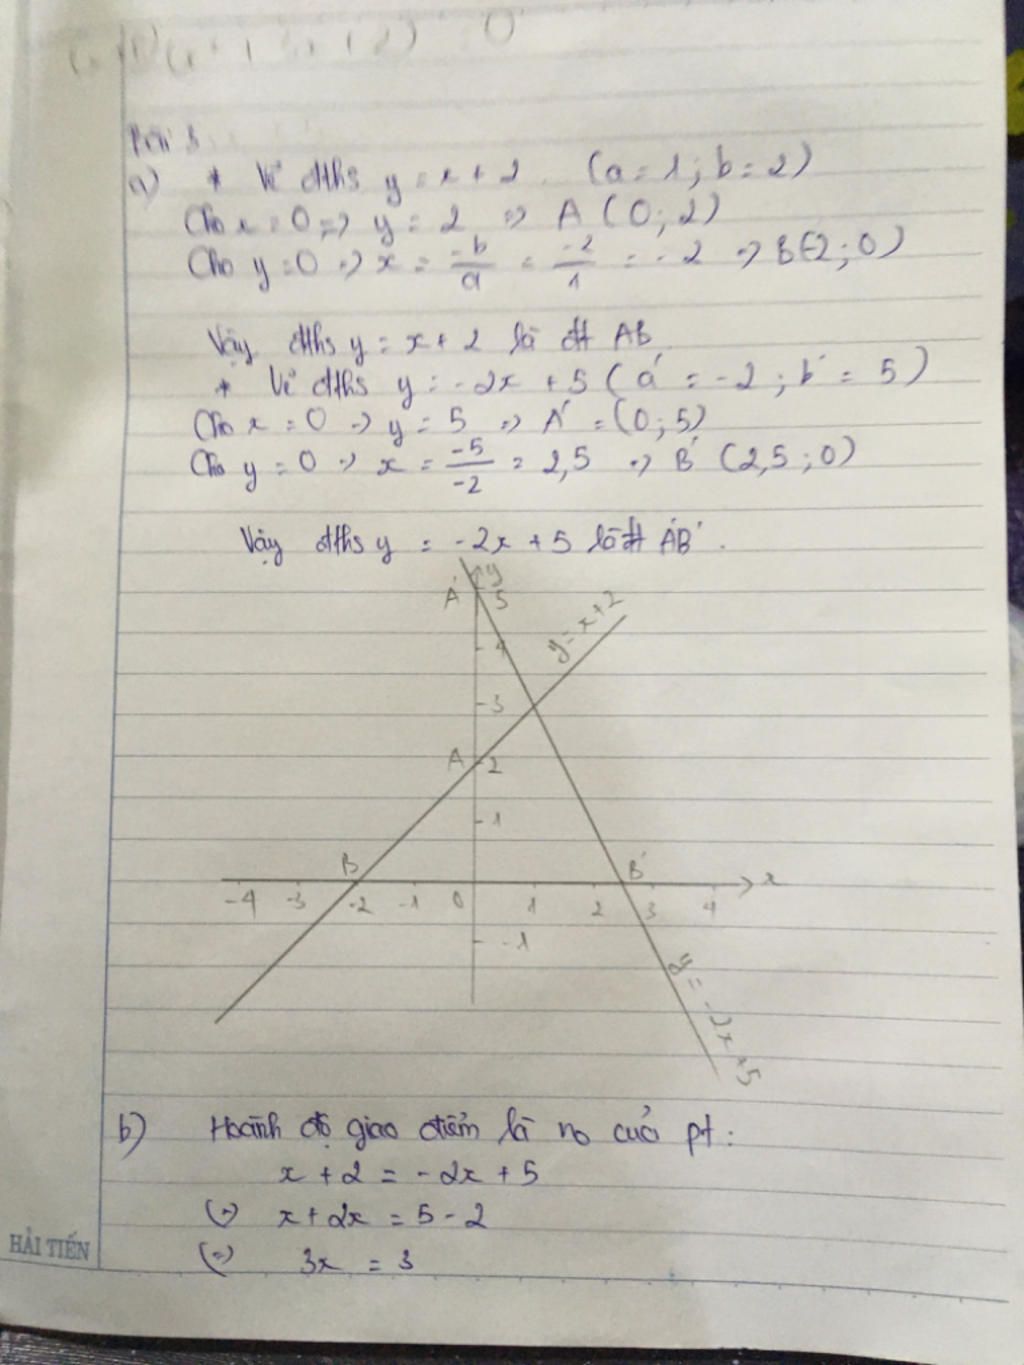 Bài 3
a) * Vẽ đths y = x + 2 (a = 1; b = 2)
Cho x = 0 => y = 2 => A (0; 2)
Cho y = 0 => x = -b/a = -2/1 = -2 => B(-2; 0)
Vậy đths y = x + 2 là đt AB
* Vẽ đths y = -2x + 5 (a' = -2; b' = 5)
Cho x = 0 => y = 5 => A' = (0; 5)
Cho y = 0 => x = -5/-2 = 2,5 => B' (2,5; 0)
Vậy đths y = -2x + 5 là đt A'B'.
y
A' 5
y = x+2
4
3
A 2
1
B B' x
-4 -3 -2 -1 0 1 2 3 4
-1
y = -2x + 5
b) Hoành độ giao điểm là no của pt:
x + 2 = -2x + 5
(=) x + 2x = 5 - 2
(=) 3x = 3
HẢI TIẾN